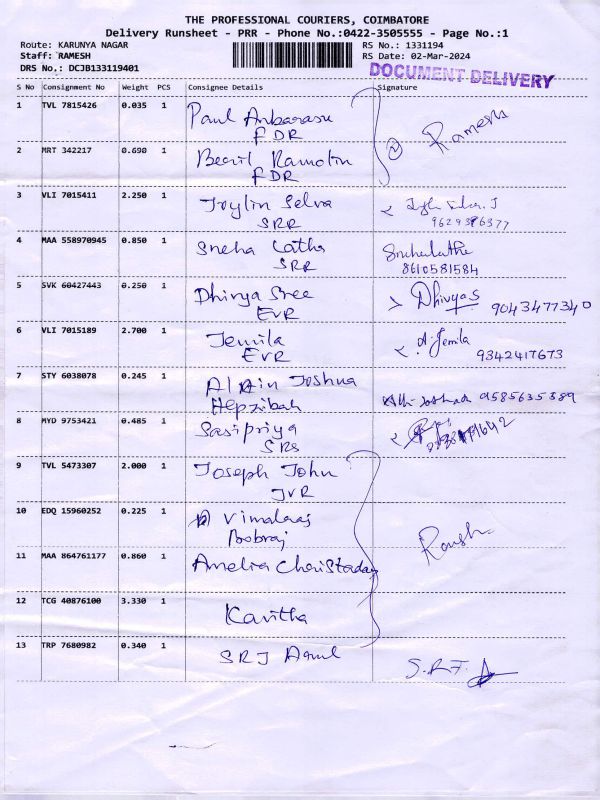 THE PROFESSIONAL COURIERS, COIMBATORE
Delivery Runsheet - PRR - Phone No.:0422-3505555 - Page No.:1
Route: KARUNYA NAGAR RS No.: 1331194
Staff: RAMESH RS Date: 02-Mar-2024
DRS No.: DCJB133119401
DOCUMENT DELIVERY
S No Consignment No Weight PCS Consignee Details Signature
1 TVL 7815426 0.035 1 Paul Anbarasu
FDR
@ Ramesh
2 MRT 342217 0.690 1 Beeril Ramolin
FDR
3 VLI 7015411 2.250 1 Joylin Selva
SRR
4 MAA 558970945 0.850 1 Sneha Latha Snehalatha
SRR 8610581584
5 SVK 60427443 0.250 1 Dhivya Sree Dhivya S 9043477340
EVR
6 VLI 7015189 2.700 1 Jemila d. Jemila
EVR 9342417673
7 STY 6038078 0.245 1 Joshua
Hepzibah 9585635389
8 MYD 9753421 0.485 1 Sasipriya
SRS
9 TVL 5473307 2.000 1 Joseph John
JVR
10 EDQ 15960252 0.225 1 Vimalraj
Bobraj
11 MAA 864761177 0.860 1 Amelia
12 TCG 40876100 3.330 1 Kavitha
13 TRP 7680982 0.340 1 SRJ